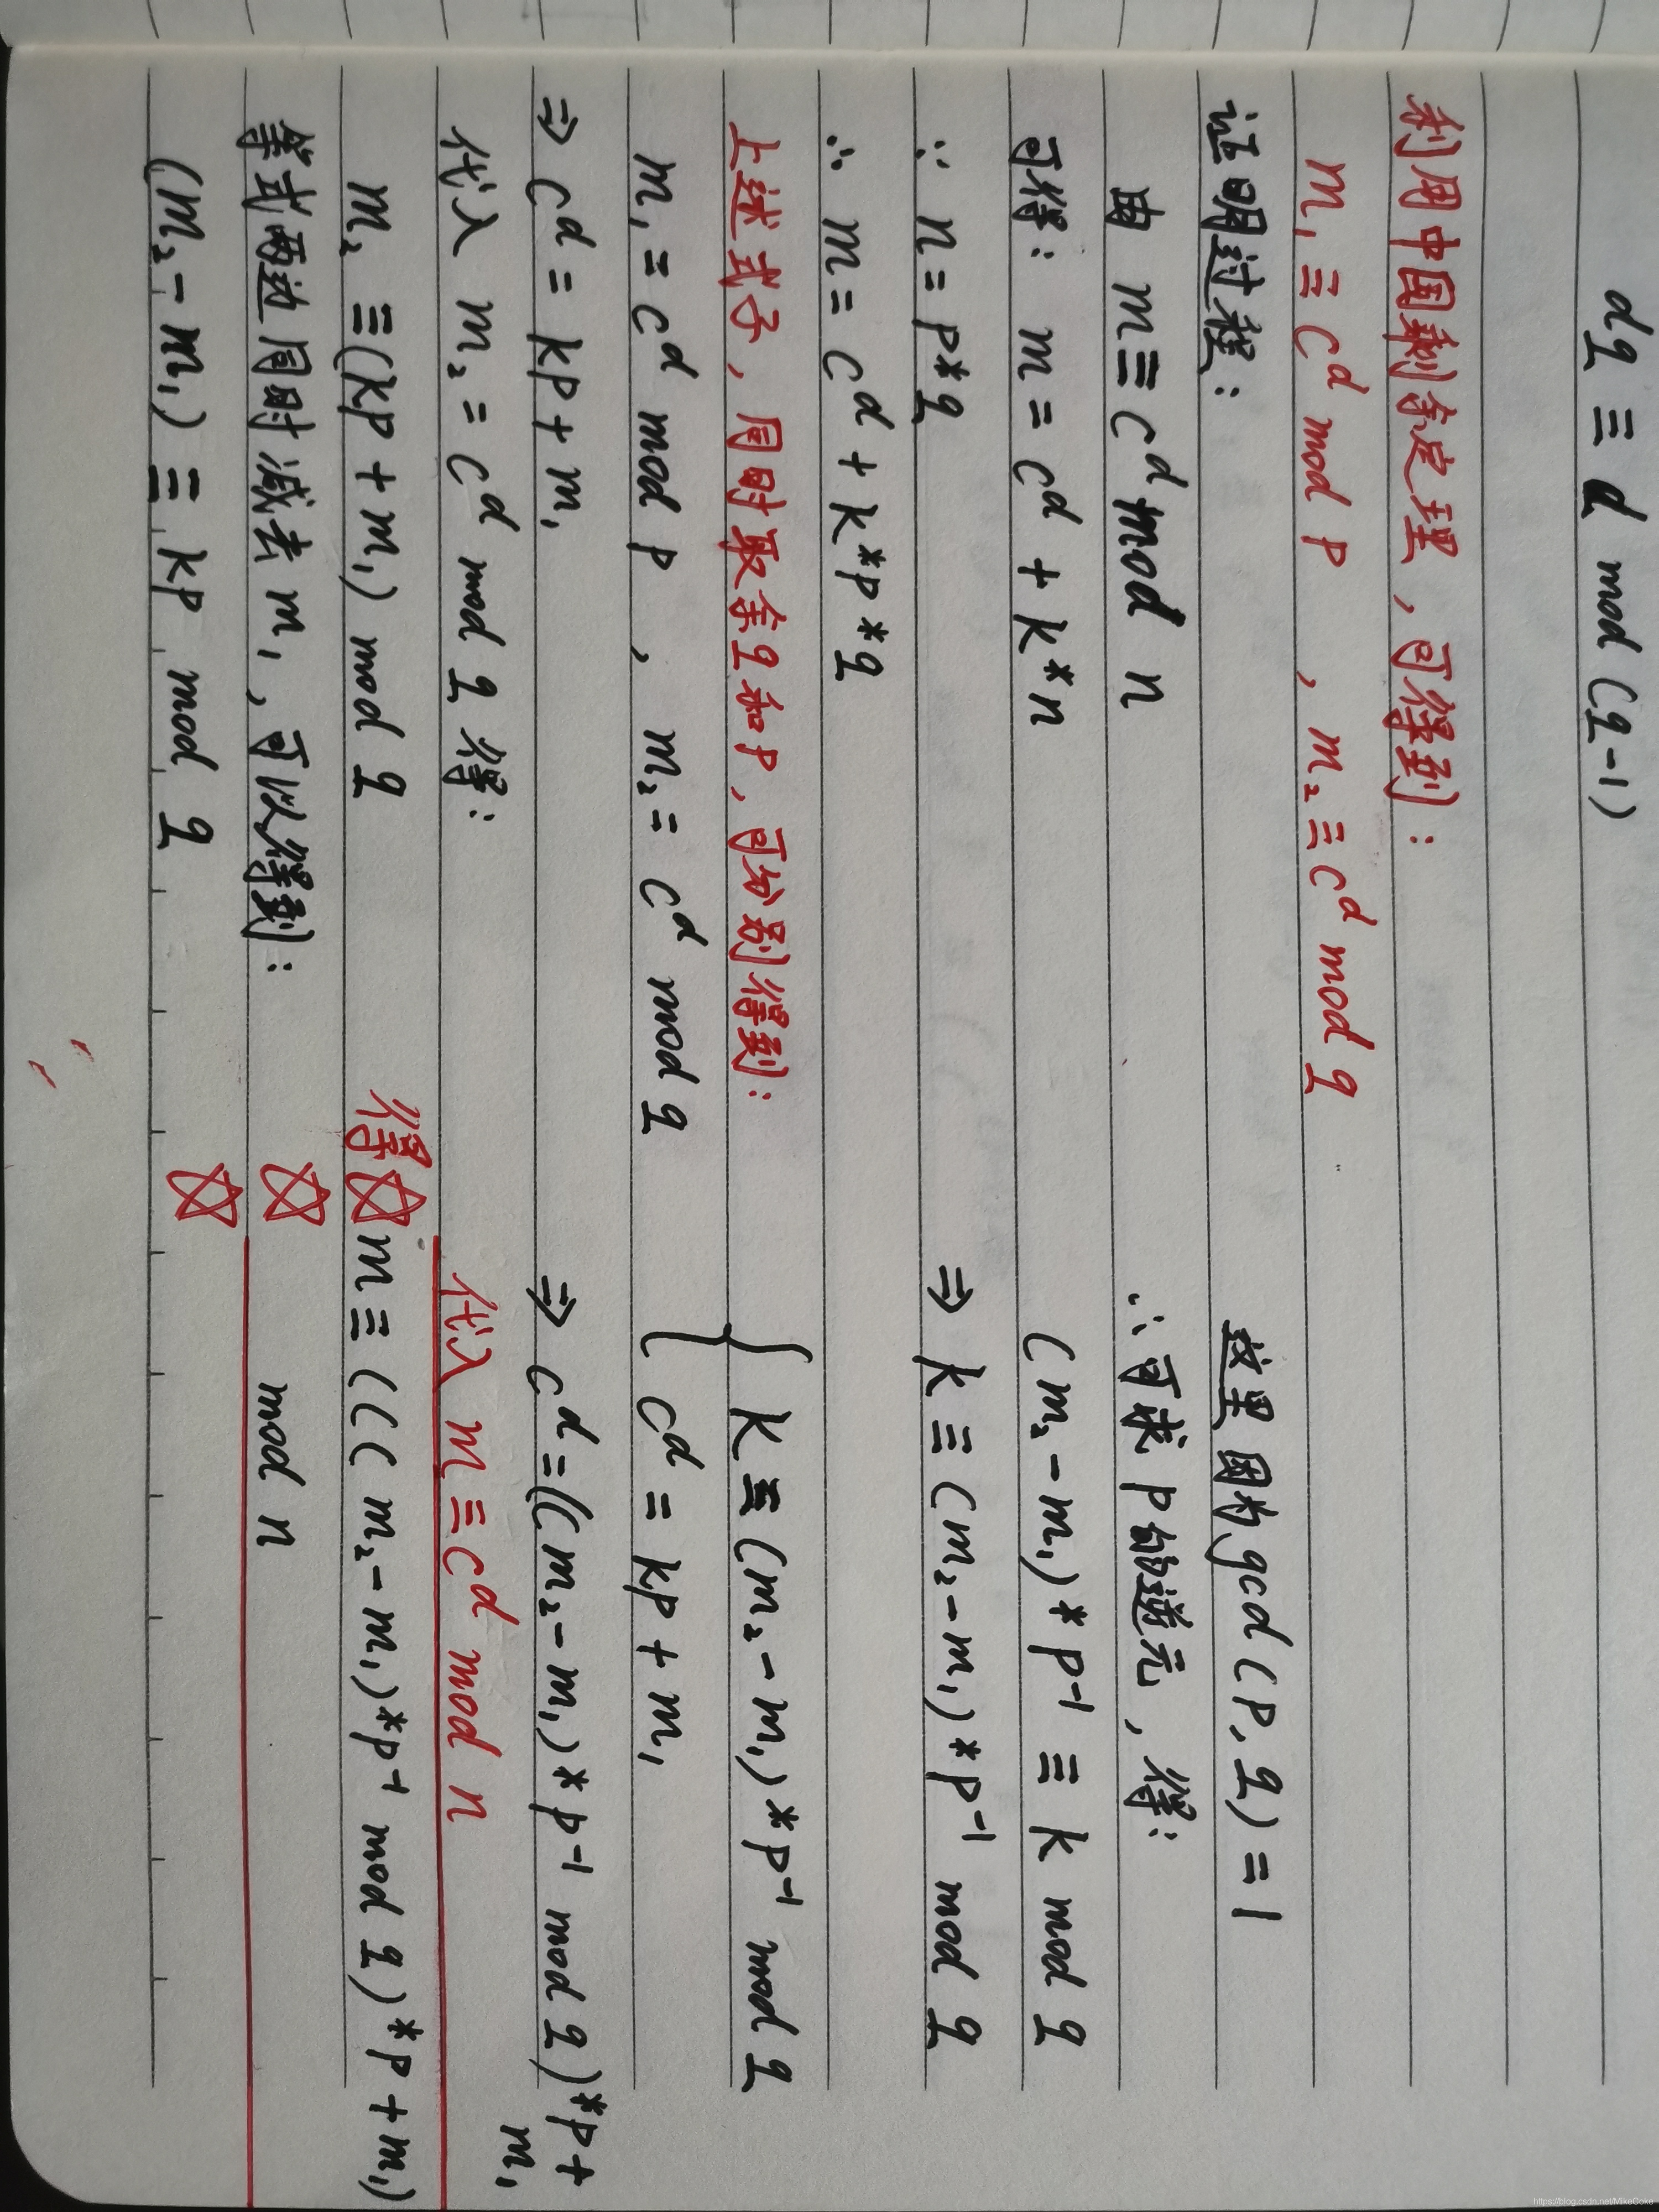 dq ≡ d mod (q-1)
利用中国剩余定理，可得到：
m₁ ≡ c^d mod p ，m₂ ≡ c^d mod q
证明过程：
由 m ≡ c^d mod n
可得： m = c^d + k*n
∵ n = p*q
∴ m = c^d + k*p*q
上述式子，同时取余q和p，可分别得到：
m₁ = c^d mod p ， m₂ = c^d mod q
⇒ c^d = kp + m₁
代入 m₂ = c^d mod q 得：
m₂ ≡ (kp + m₁) mod q
等式两边同时减去 m₁，可以得到：
(m₂ - m₁) ≡ kp mod q
这里因为gcd(p,q) = 1
∴ 可求 p 的逆元，得：
(m₂ - m₁)*p⁻¹ ≡ k mod q
⇒ k ≡ (m₂ - m₁)*p⁻¹ mod q
{ k ≡ (m₂ - m₁)*p⁻¹ mod q
c^d = kp + m₁
⇒ c^d = ((m₂ - m₁)*p⁻¹ mod q)*p +
m₁
代入 m ≡ c^d mod n
得☆ m ≡ (((m₂ - m₁)*p⁻¹ mod q)*p + m₁)
☆ mod n
☆
https://blog.csdn.net/MikeCoke